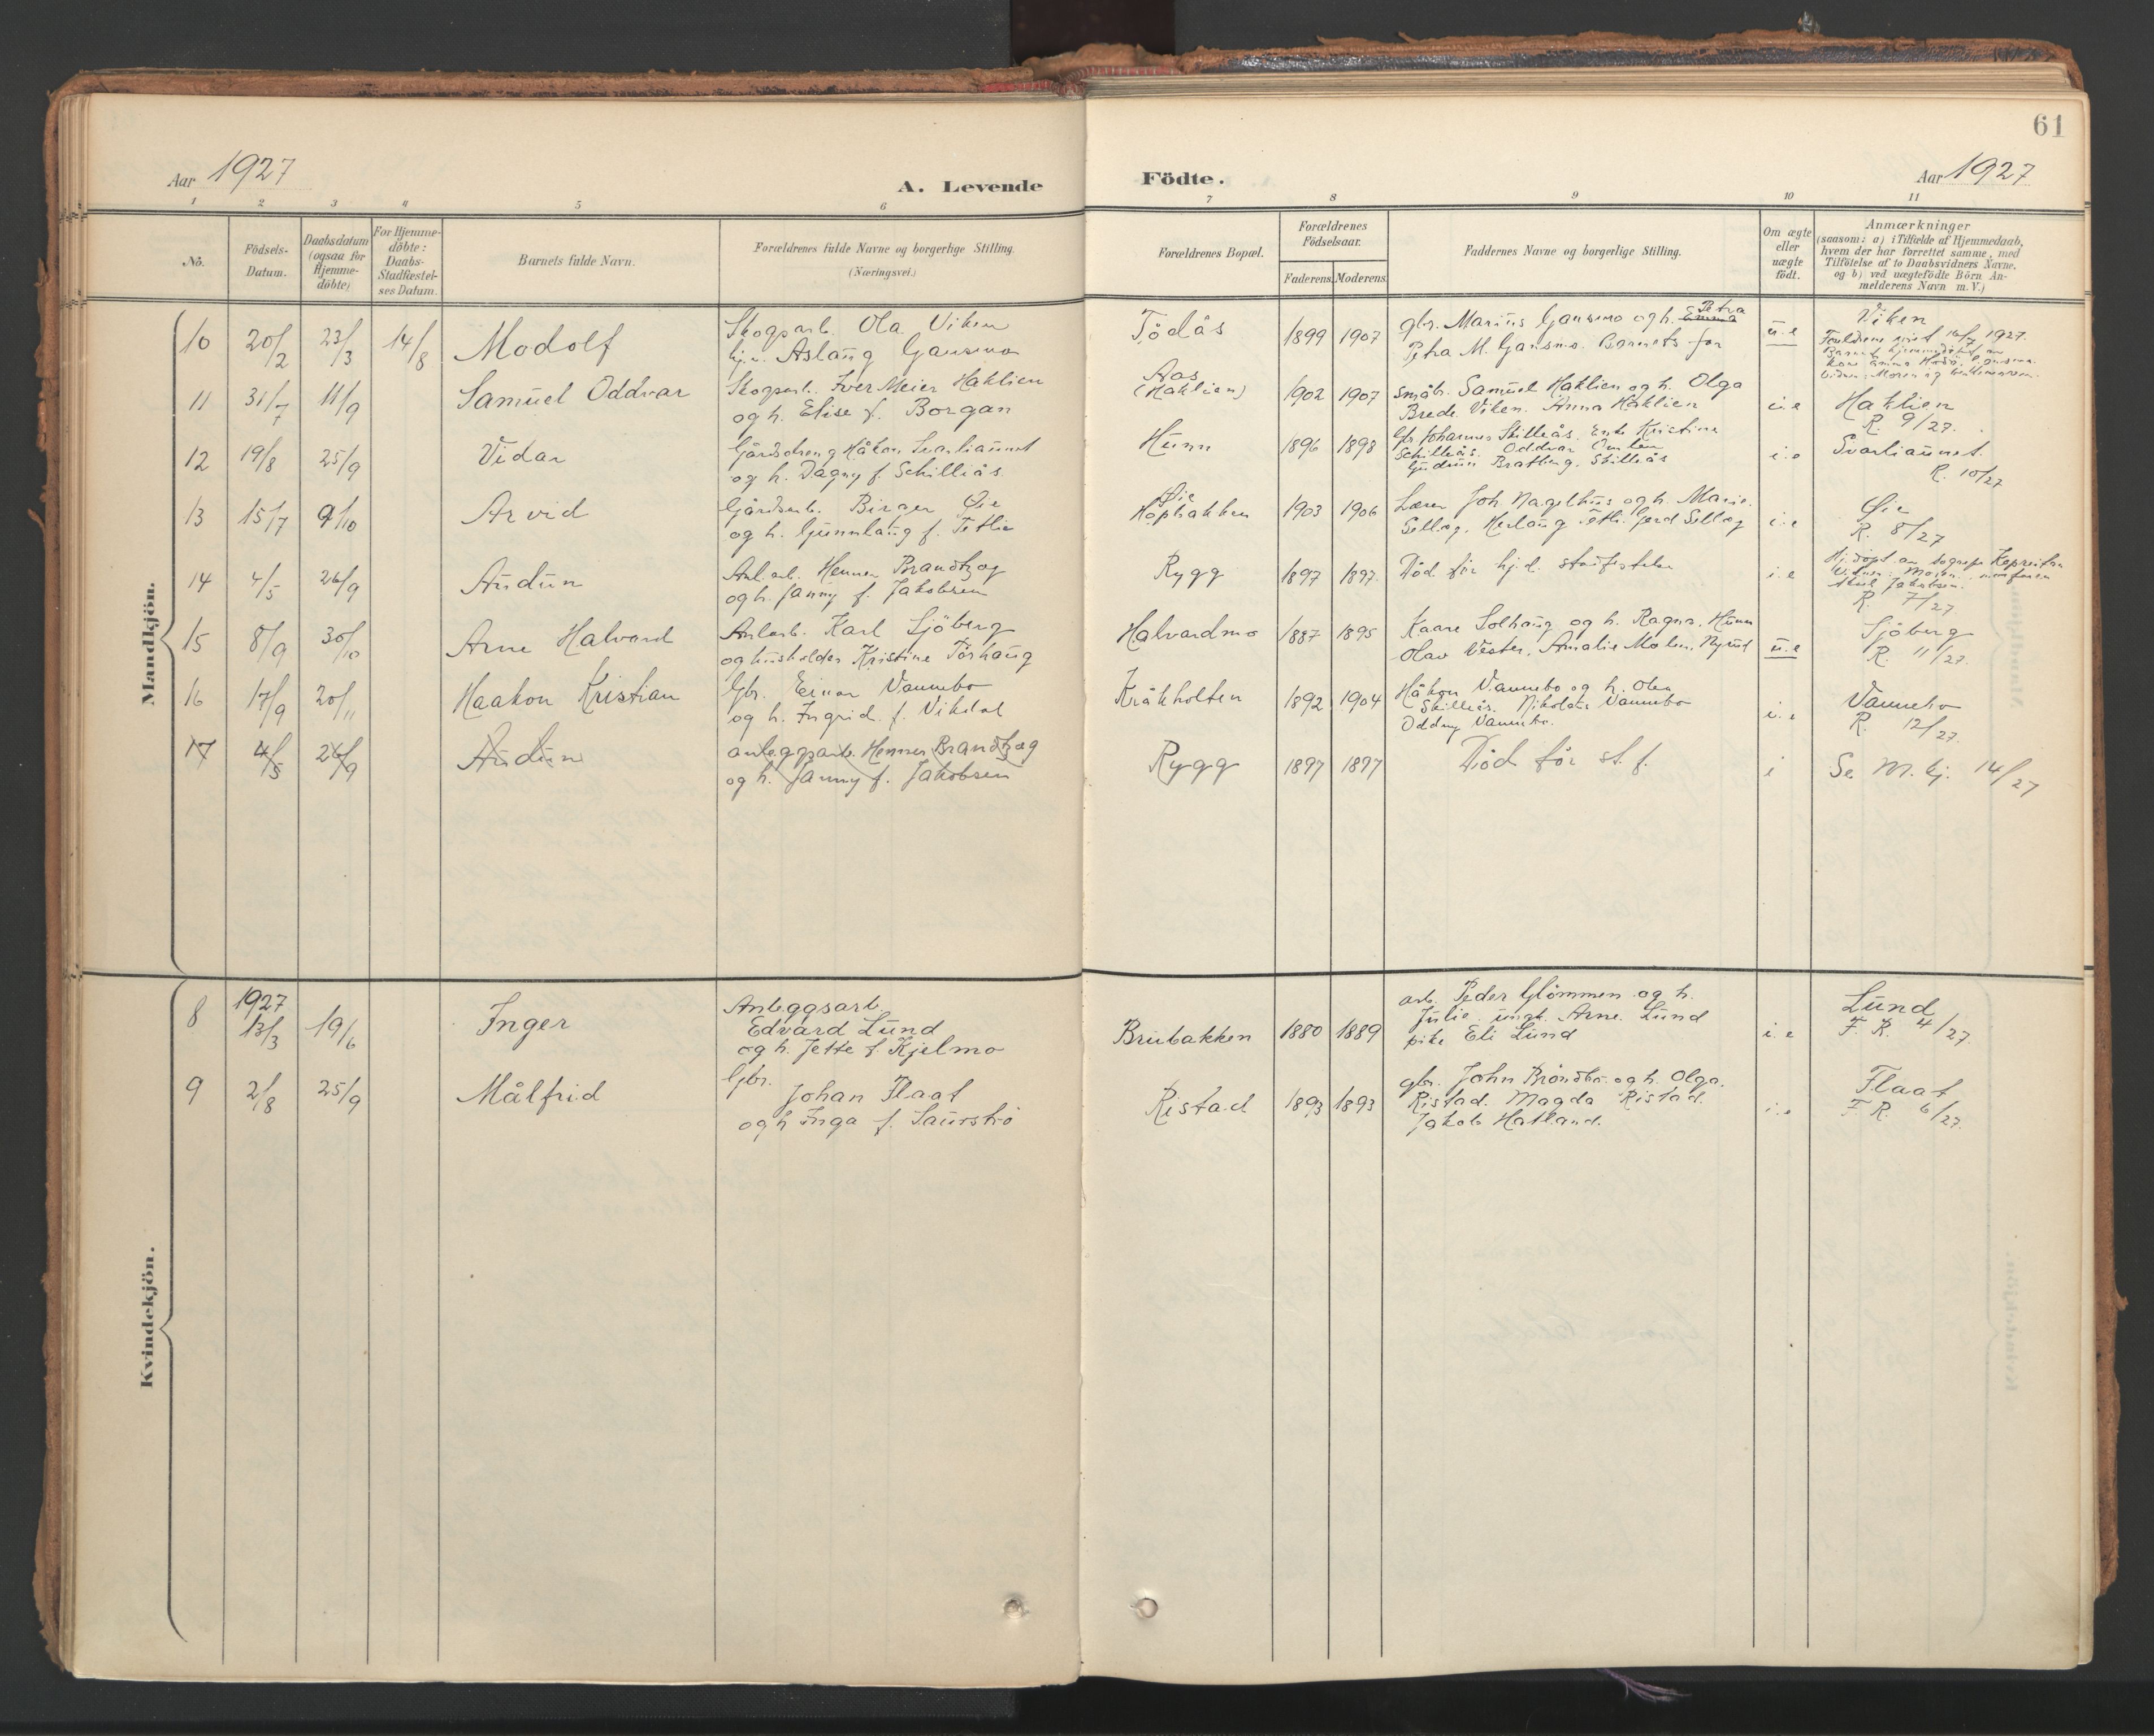 61
Aar 1927
A. Levende
Födte.
Aar 1927
1 2 3 4 5 6 7 8 9 10 11
No.
Födsels-
Datum.
Daabsdatum
(ogsaa for
Hjemme-
döbte)
For Hjemme-
döbte:
Daabs-
Stadfæstel-
ses Datum.
Barnets fulde Navn.
Forældrenes fulde Navne og borgerlige Stilling.
(Næringsvei.)
Forældrenes Bopæl.
Forældrenes
Födselsaar.
Faderens. Moderens.
Faddernes Navne og borgerlige Stilling.
Om ægte
eller
uægte
födt.
Anmærkninger
(saasom: a) i Tilfælde af Hjemmedaab,
hvem der har forrettet samme, med
Tilföielse af to Daabsvidners Navne,
og b) ved uægtefödte Börn An-
melderens Navn m. V.)
Mandkjön.
10 20/2 23/3 14/8 Modolf
Skogsarb. Ola Viken
Aslaug Gausmo
Tödås 1899 1907
gbr. Marius Gausmo og h. Emma Petra
Petra M. Gausmo. Barnets far
u.e
Viken
Foreldrene 1927.
11 31/7 11/9 Samuel Oddvar
Skogsarb. Iver Meier Haklien
og h. Elise f. Borgan
Aas
(Haklien) 1902 1907
småbr. Samuel Haklien og h. Olga
Brede Viken. Anna Haklien
i.e
Haklien
R. 9/27.
12 19/8 25/9 Vidar
Gårdsdreng Håkon Svarliaunet
og h. Dagny f. Schilliås
Hunn 1896 1898
Gbr. Johannes Skilleås. Enke Kristine
Schilleås. Oddvar
Gudrun Bratberg. Skilleås
i.e
Svarliaunet.
R. 10/27
13 15/7 9/10 Arvid
Gårdsarb. Birger Øie
og h. Gunnlaug f. Tetlie
Øie
Høpbakken 1903 1906
Lærer Joh. Nagelhus og h. Marie
Selleg. Herlaug Tetli. Gerd Selleg
i.e
Øie
R. 8/27
14 4/5 26/9 Audun
Anl.arb. Henner Brandtzæg
og h. Janny f. Jakobsen
Rygg 1897 1897.
Död för hj.d. stadfestelse
i.e
R. 7/27.
15 8/9 30/10 Arne Halvard
Anl.arb. Karl Sjöberg
og husholder Kristine Törhaug
Halvardmo 1887 1895
Kaare Solhaug og h. Ragna. Hunn
Olav Vester. Amalie Moten. Nyrud
u.e
Sjöberg
R. 11/27.
16 17/9 20/11 Haakon Kristian
Gbr. Einar Vannebo
og h. Ingrid f. Vikdal
Kråkholten 1892 1904
Håkon Vannebo og h. Olea
Skilleås. Nikolai Vannebo
Oddny Vannebo.
i.e
Vannebo
R. 12/27.
17 4/5 26/9 Audun
anleggsarb. Henner Brandtzæg
og h. Janny f. Jakobsen
Rygg 1897 1897
Död för st. f.
i
Se M. kj. 14/27
Kvindekjön.
8 1927
13/3 19/6 Inger
Anleggsarb.
Edvard Lund
og h. Jette f. Kjelmo
Brubakken 1880 1889
arb. Peder Glömmen og h.
Julie. ungk. Arne Lund
pike Eli Lund
i.e
Lund
F. R. 4/27.
9 2/8 25/9 Målfrid
Gbr.
Johan Flaat
og h Inga f. Saurstrø
Ristad 1893 1893
gbr. John Bröndbo og h. Olga.
Ristad. Magda Ristad.
Jakob Hatland.
i.e
Flaat
F. R. 6/27.